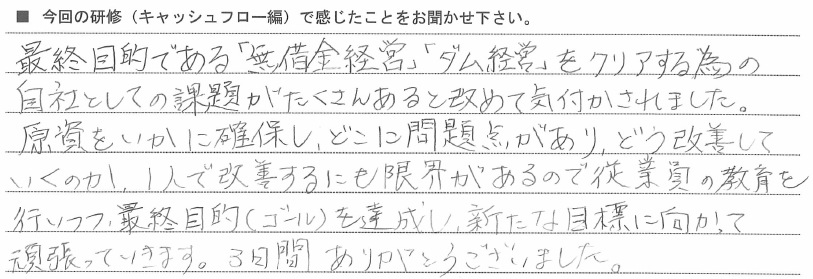 ■ 今回の研修（キャッシュフロー編）で感じたことをお聞かせ下さい。
最終目的である「無借金経営」「ダム経営」をクリアする為の
自社としての課題がたくさんあると改めて気付かされました。
原資をいかに確保し、どこに問題点があり、どう改善して
いくのか、1人で改善するにも限界があるので従業員の教育を
行いつつ、最終目的（ゴール）を達成し、新たな目標に向かって
頑張っていきます。3日間 ありがとうございました。